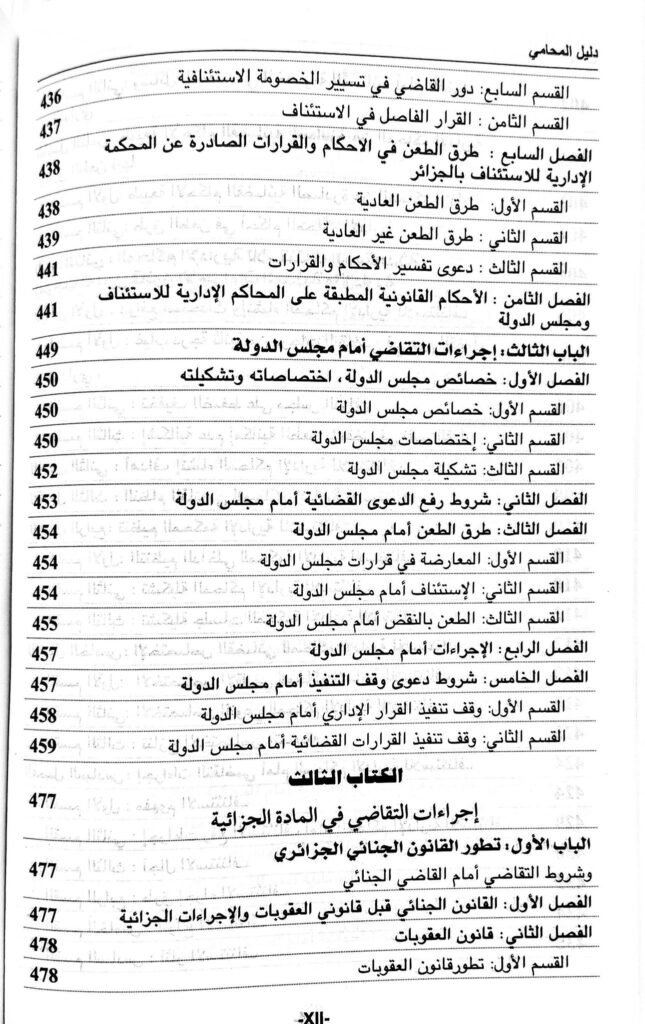 دليل المحامي
القسم السابع: دور القاضي في تسيير الخصومة الاستئنافية 436
القسم الثامن : القرار الفاصل في الاستئناف 437
الفصل السابع : طرق الطعن في الاحكام والقرارات الصادرة عن المحكمة
الإدارية للاستئناف بالجزائر 438
القسم الأول: طرق الطعن العادية 438
القسم الثاني : طرق الطعن غير العادية 439
القسم الثالث : دعوى تفسير الأحكام والقرارات 441
الفصل الثامن : الأحكام القانونية المطبقة على المحاكم الإدارية للاستئناف
ومجلس الدولة 441
الباب الثالث: إجراءات التقاضي أمام مجلس الدولة 449
الفصل الأول: خصائص مجلس الدولة، اختصاصاته وتشكيلته 450
القسم الأول: خصائص مجلس الدولة 450
القسم الثاني: إختصاصات مجلس الدولة 450
القسم الثالث: تشكيلة مجلس الدولة 452
الفصل الثاني: شروط رفع الدعوى القضائية أمام مجلس الدولة 453
الفصل الثالث: طرق الطعن أمام مجلس الدولة 454
القسم الأول: المعارضة في قرارات مجلس الدولة 454
القسم الثاني: الإستئناف أمام مجلس الدولة 454
القسم الثالث: الطعن بالنقض أمام مجلس الدولة 455
الفصل الرابع: الإجراءات أمام مجلس الدولة 457
الفصل الخامس: شروط دعوى وقف التنفيذ أمام مجلس الدولة 457
القسم الأول: وقف تنفيذ القرار الإداري أمام مجلس الدولة 458
القسم الثاني: وقف تنفيذ القرارات القضائية أمام مجلس الدولة 459
الكتاب الثالث
إجراءات التقاضي في المادة الجزائية 477
الباب الأول: تطور القانون الجنائي الجزائري
وشروط التقاضي أمام القاضي الجنائي 477
الفصل الأول: القانون الجنائي قبل قانوني العقوبات والإجراءات الجزائية 477
الفصل الثاني: قانون العقوبات 478
القسم الأول: تطورقانون العقوبات 478
-XII-